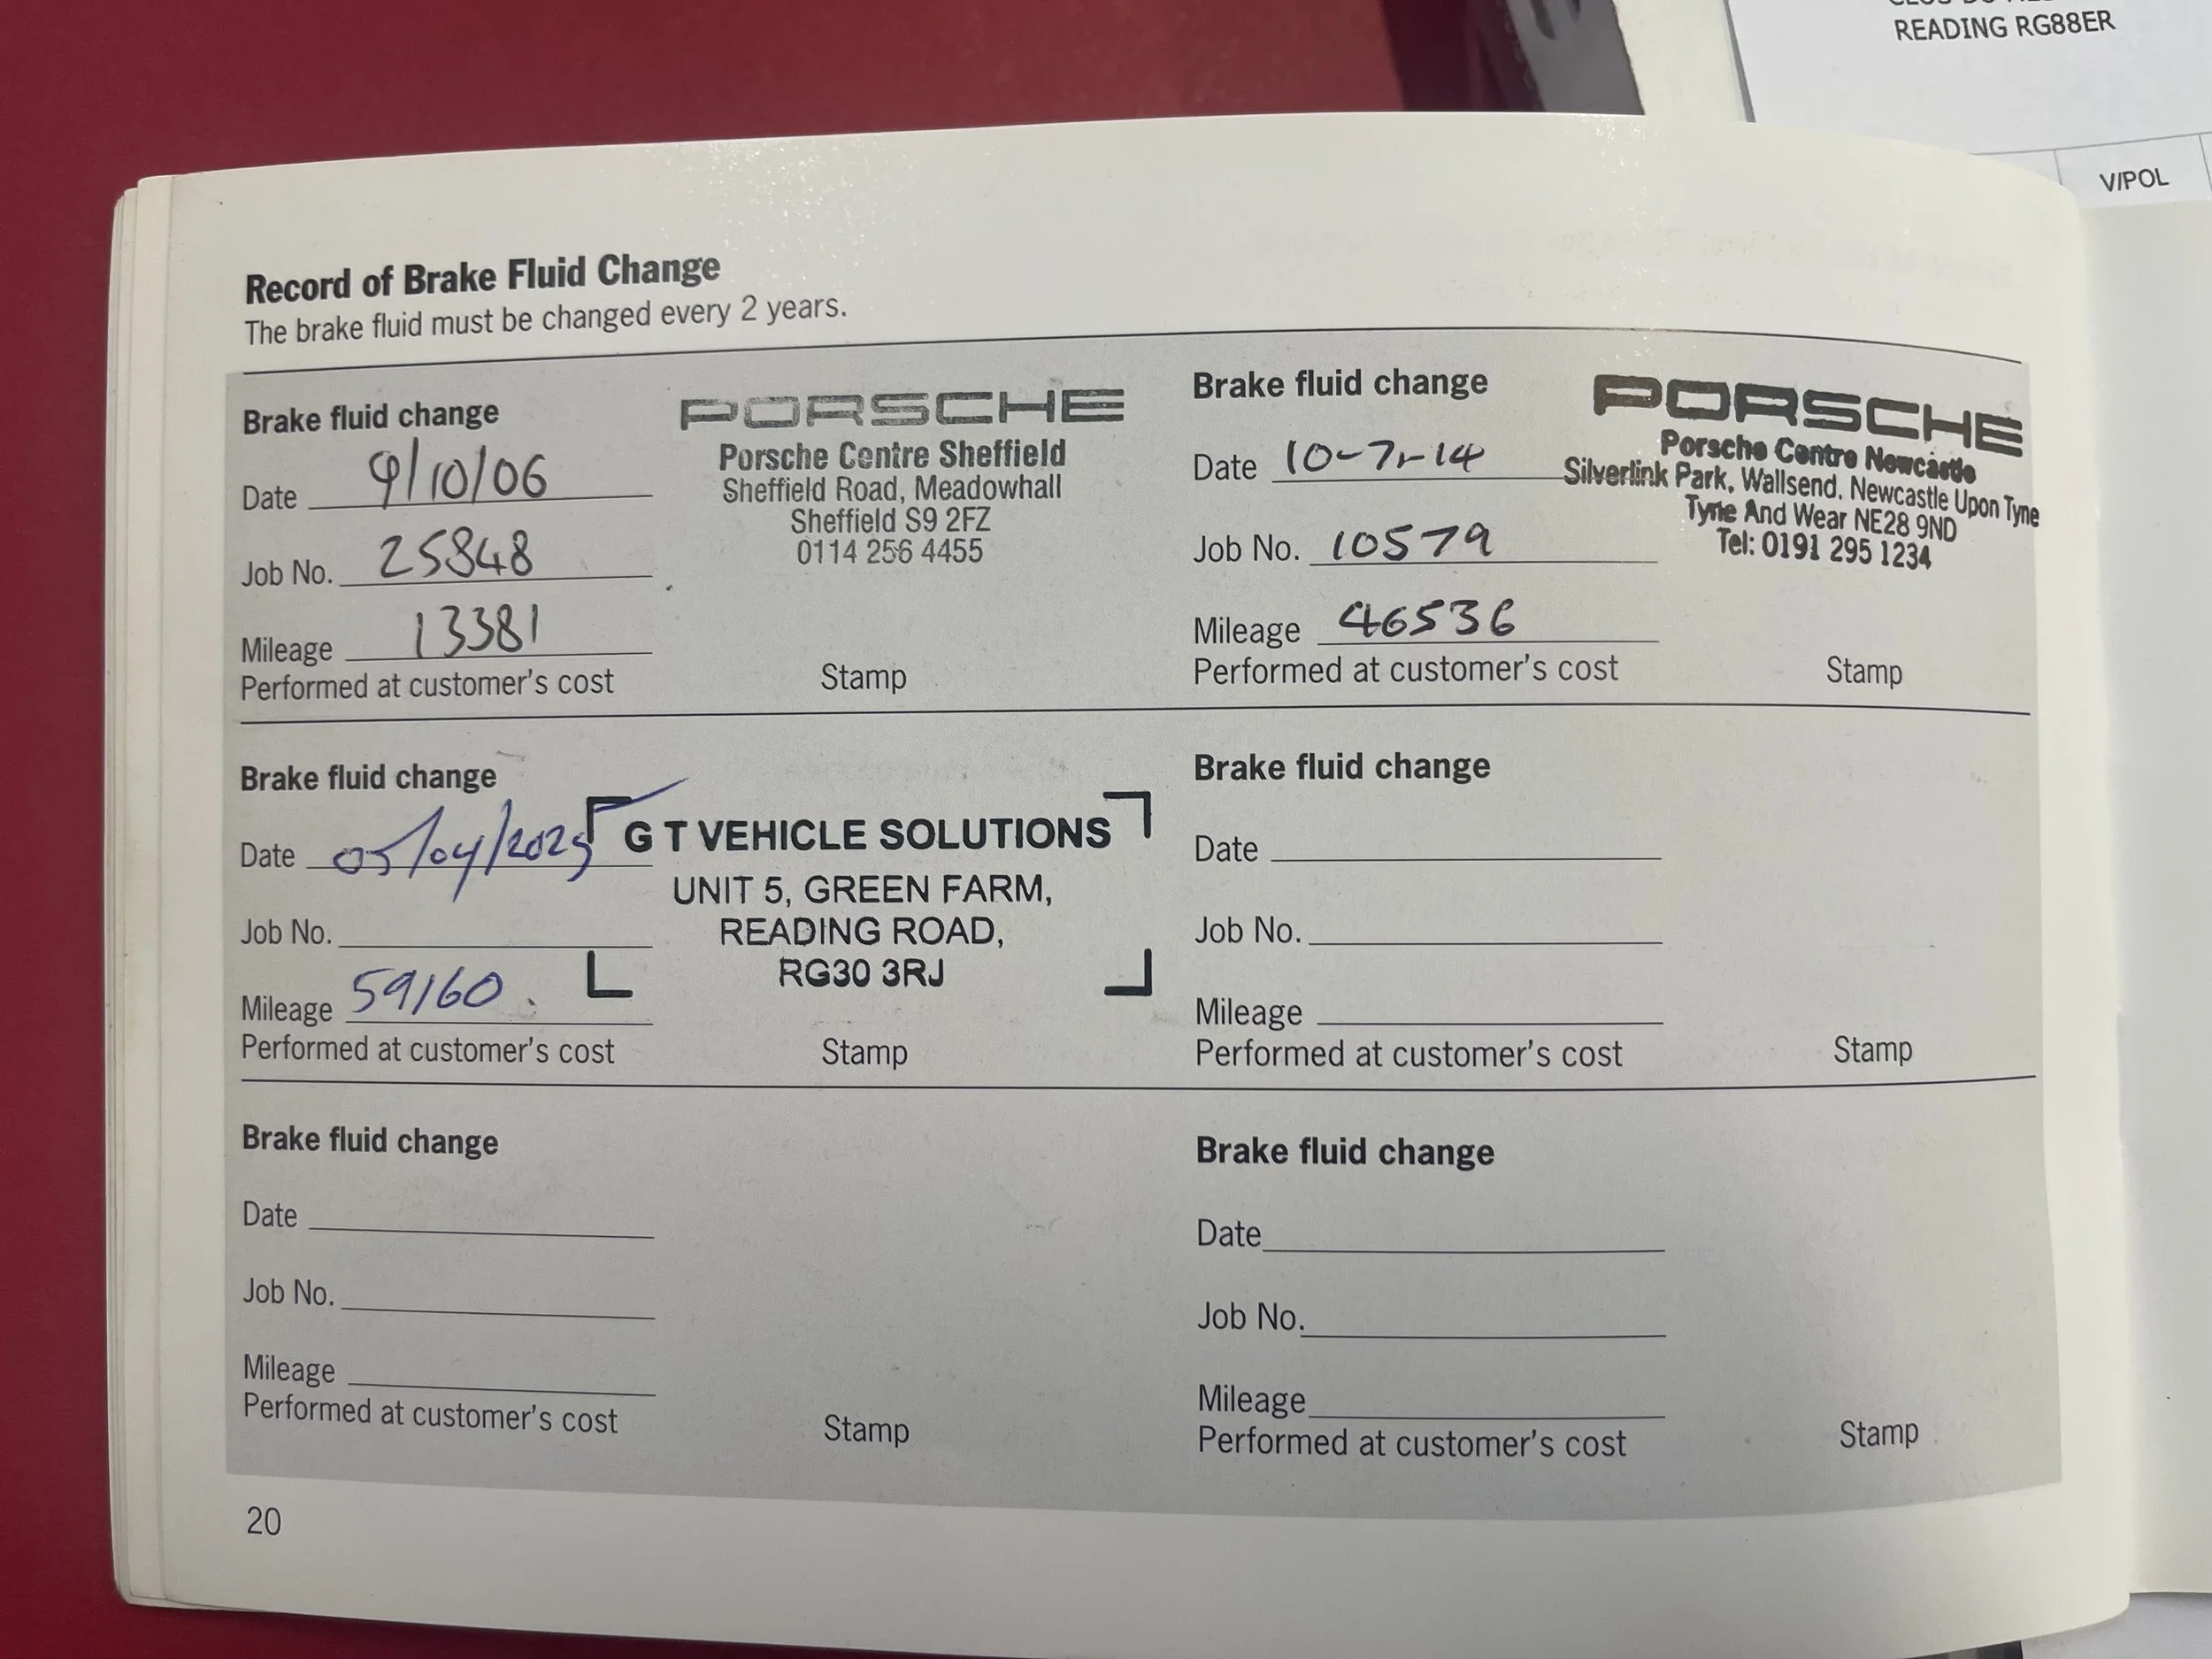 READING RG88ER
V/POL
Record of Brake Fluid Change
The brake fluid must be changed every 2 years.
Brake fluid change
Date 9/10/06
Job No. 25848
Mileage 13381
Performed at customer's cost
PORSCHE
Porsche Centre Sheffield
Sheffield Road, Meadowhall
Sheffield S9 2FZ
0114 256 4455
Stamp
Brake fluid change
Date 10-7-14
Job No. 10579
Mileage 46536
Performed at customer's cost
PORSCHE
Porsche Centre Newcastle
Silverlink Park, Wallsend. Newcastle Upon Tyne
Tyne And Wear NE28 9ND
Tel: 0191 295 1234
Stamp
Brake fluid change
Date 05/04/2025
Job No.
Mileage 59160
Performed at customer's cost
G T VEHICLE SOLUTIONS
UNIT 5, GREEN FARM,
READING ROAD,
RG30 3RJ
Stamp
Brake fluid change
Date
Job No.
Mileage
Performed at customer's cost
Stamp
Brake fluid change
Date
Job No.
Mileage
Performed at customer's cost
Stamp
Brake fluid change
Date
Job No.
Mileage
Performed at customer's cost
Stamp
20